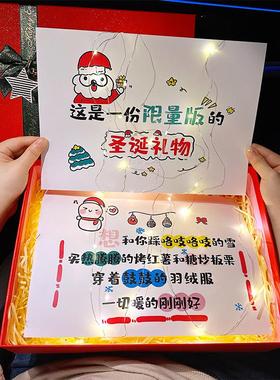 这是一份限量版的
圣诞礼物
想和你踩咯吱咯吱的雪
买热腾腾的烤红薯和糖炒板栗
穿着鼓鼓的羽绒服
一切暖的刚刚好